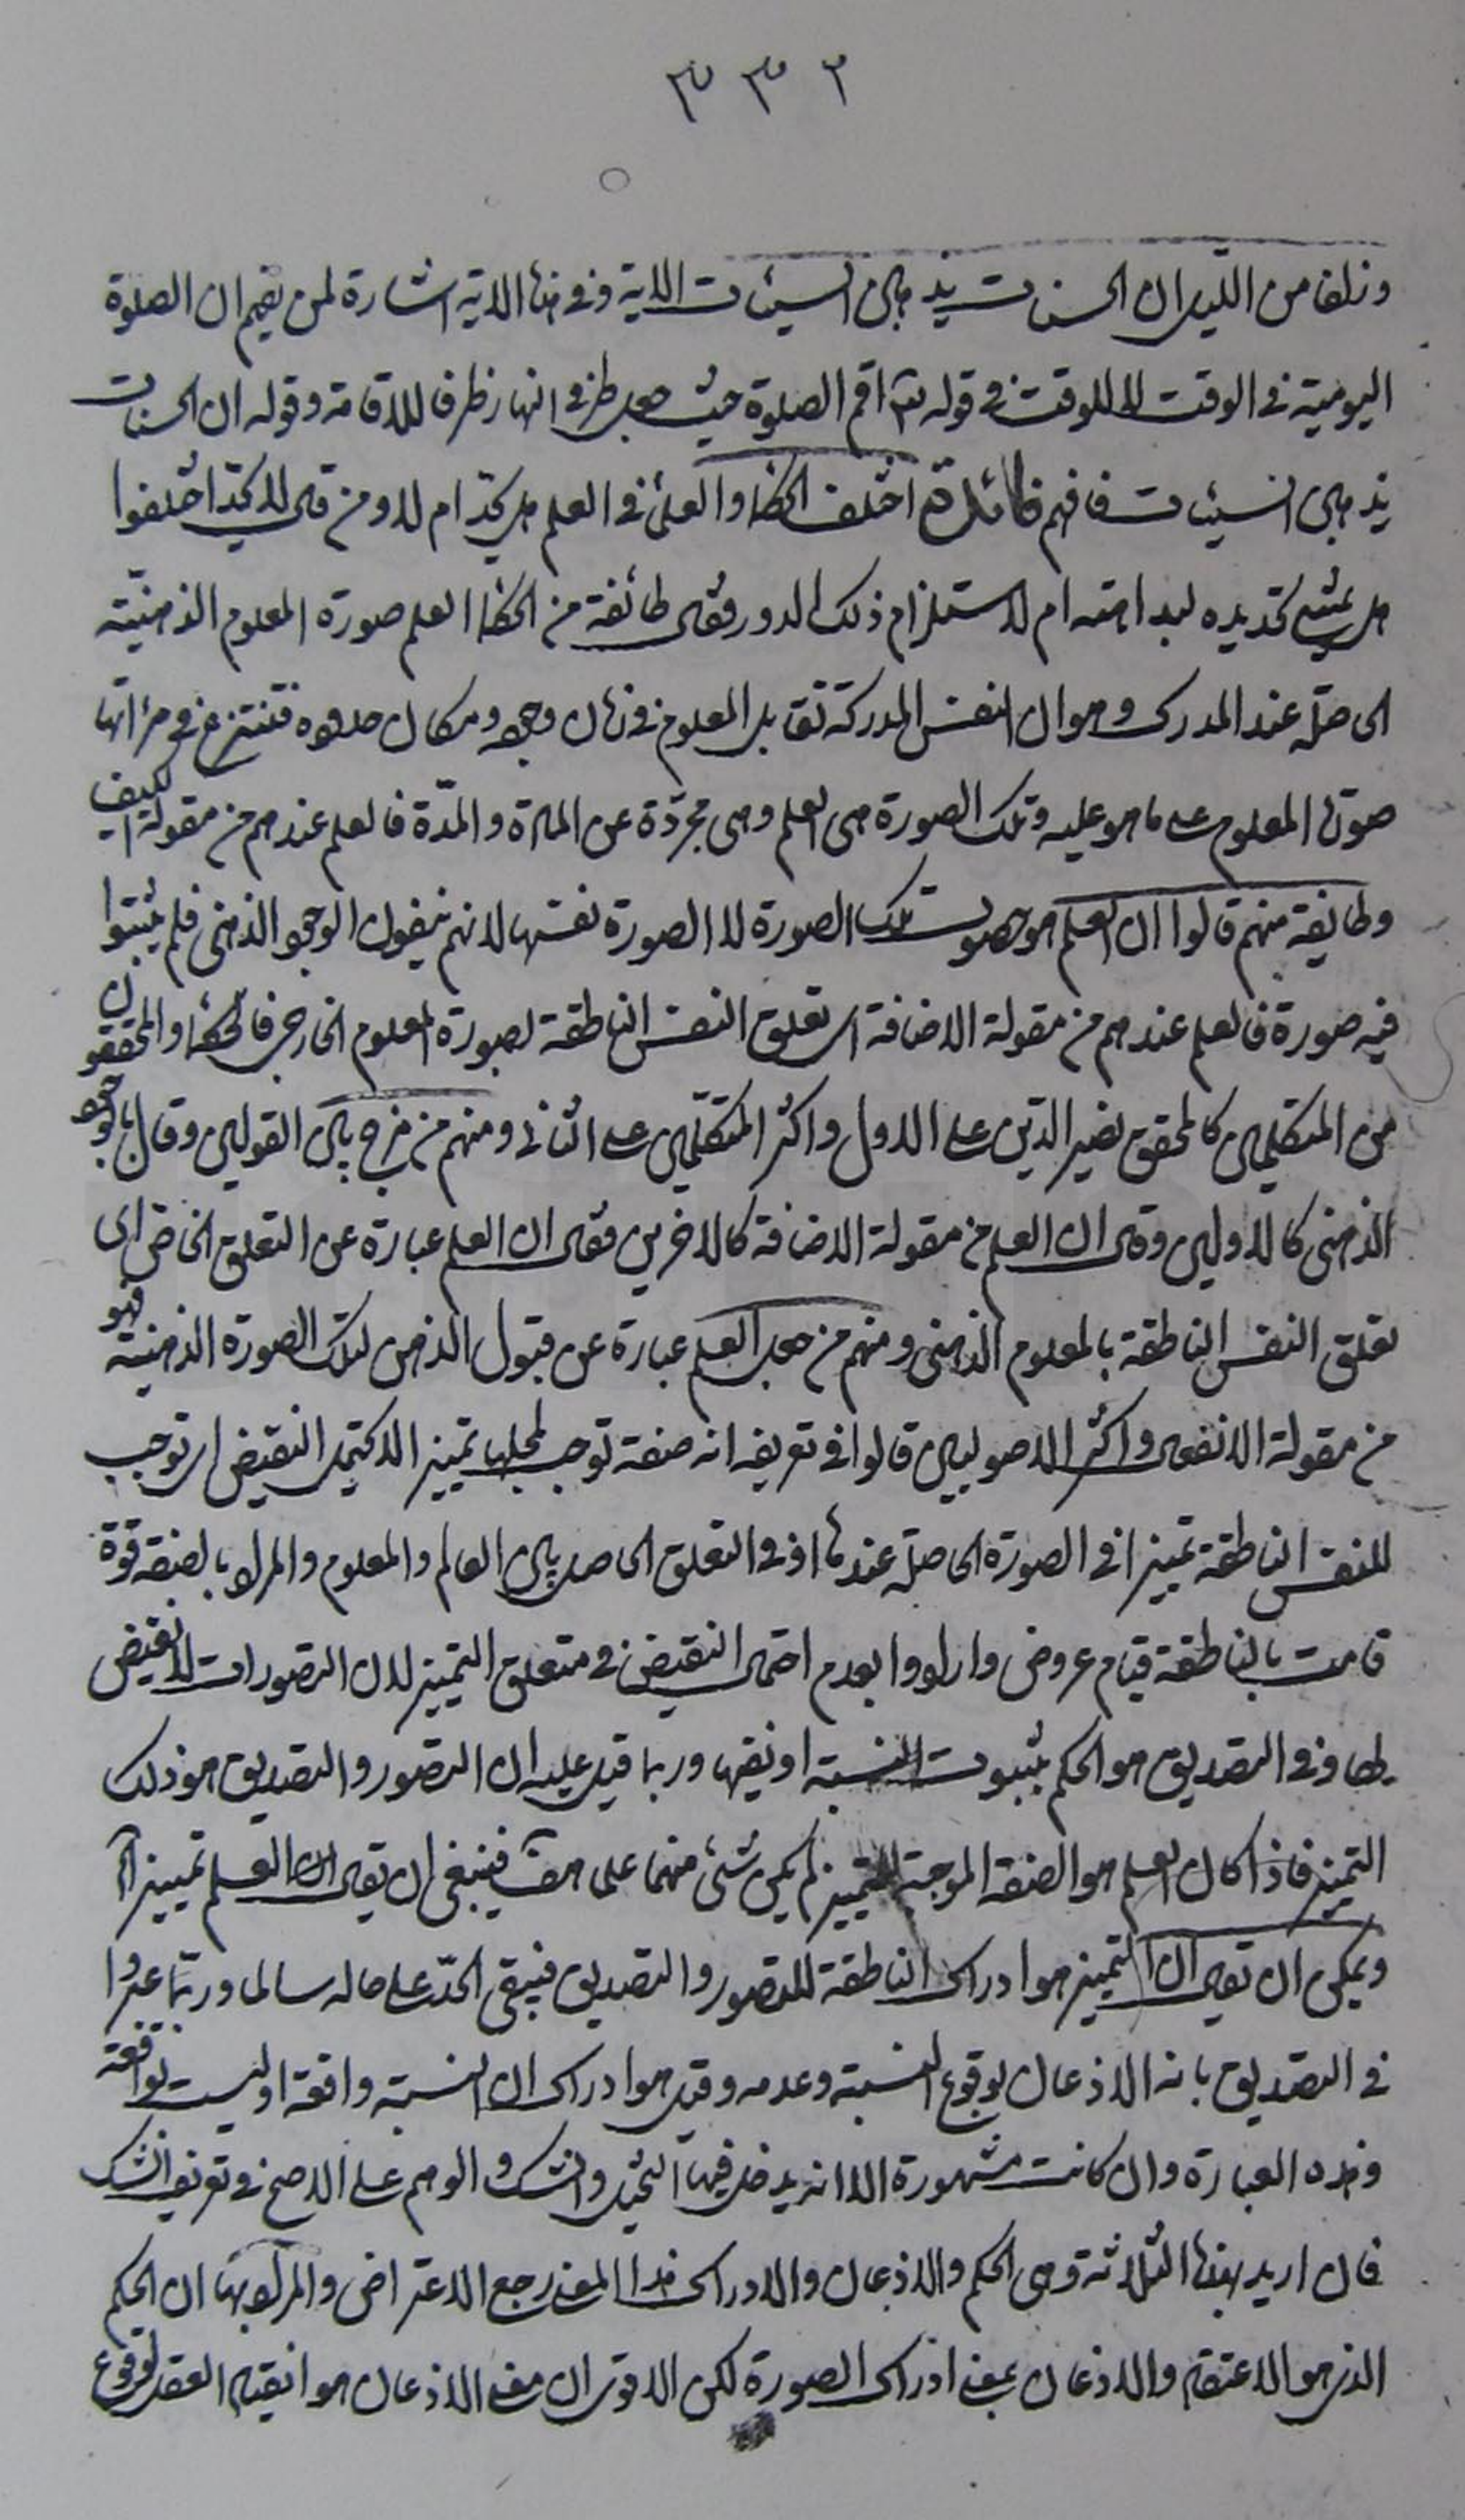 ٣٣٢
وزلفا من الليل ان الحسنات يذهبن السيئات الاية وفي هذه الاية اشارة لمن يقيم ان الصلوة
اليومية في الوقت لا للوقت في قوله تعالى اقم الصلوة حيث جعل طرفي النهار ظرفا للاقامة وقوله ان الحسنات
يذهبن السيئات فافهم فائدة اختلف الحكماء والعلماء في العلم هل يحد ام لا ومن قال لا يحد اختلفوا
هل يمتنع تحديده لبداهته ام لاستلزام ذلك الدور فقال طائفة من الحكماء العلم صورة المعلوم الذهنية
الحاصلة عند المدرك وهو ان النفس المدركة تقابل المعلوم في زمان وجوده ومكان حدوده فتنتزع في مرآتها
صورة المعلوم على ما هو عليه وتلك الصورة هي العلم وهي مجردة عن المادة والمدة فالعلم عندهم من مقولة الكيف
وطائفة منهم قالوا ان العلم هو حصول تلك الصورة لا الصورة نفسها لانهم ينفون الوجود الذهني فلم يثبتوا
فيه صورة فالعلم عندهم من مقولة الاضافة اي تعلق النفس الناطقة بصورة المعلوم الخارجي فالحكماء والمحققون
من المتكلمين كالمحقق نصير الدين على الاول واكثر المتكلمين على الثاني ومنهم من مزج بين القولين وقال بالوجود
الذهني كالاولين وقال ان العلم من مقولة الاضافة كالاخرين فقال ان العلم عبارة عن التعلق الخاص اي
تعلق النفس الناطقة بالمعلوم الذهني ومنهم من جعل العلم عبارة عن قبول الذهن لتلك الصورة الذهنية فهو
من مقولة الانفعال واكثر الاصوليين قالوا في تعريفه انه صفة توجب لمحلها تمييزا لا يحتمل النقيض اي توجب
للنفس الناطقة تمييزا في الصورة الحاصلة عندها او في التعلق الحاصل بين العالم والمعلوم والمراد بالصفة قوة
قامت بالناطقة قيام عروض وارادوا بعدم احتمال النقيض في متعلق التمييز لان التصورات لا نقيض
لها وفي التصديق هو الحكم بثبوت النسبة او نفيها وربما قيل عليه ان التصور والتصديق هو ذلك
التمييز فاذا كان العلم هو الصفة الموجبة للتمييز لم يكن شئ منهما علما هف فينبغي ان يقال ان العلم تمييز اه
ويمكن ان يقال ان التمييز هو ادراك الناطقة للتصور والتصديق فيبقى الحد على حاله سالما وربما عبروا
في التصديق بانه الاذعان لوقوع النسبة وعدمه وقيل هو ادراك ان النسبة واقعة او ليست بواقعة
وهذه العبارة وان كانت مشهورة الا انه يدخل فيها التخيل والشك والوهم على الاصح في تعريف الشك
فان اريد بهذه الثلاثة وهي الحكم والاذعان والادراك هذا المعنى رجع الاعتراض والمراد بها ان الحكم
الذي هو الاعتقاد والاذعان بمعنى ادراك الصورة لكن الاقوى ان معنى الاذعان هو انقياد العقل لوقوع